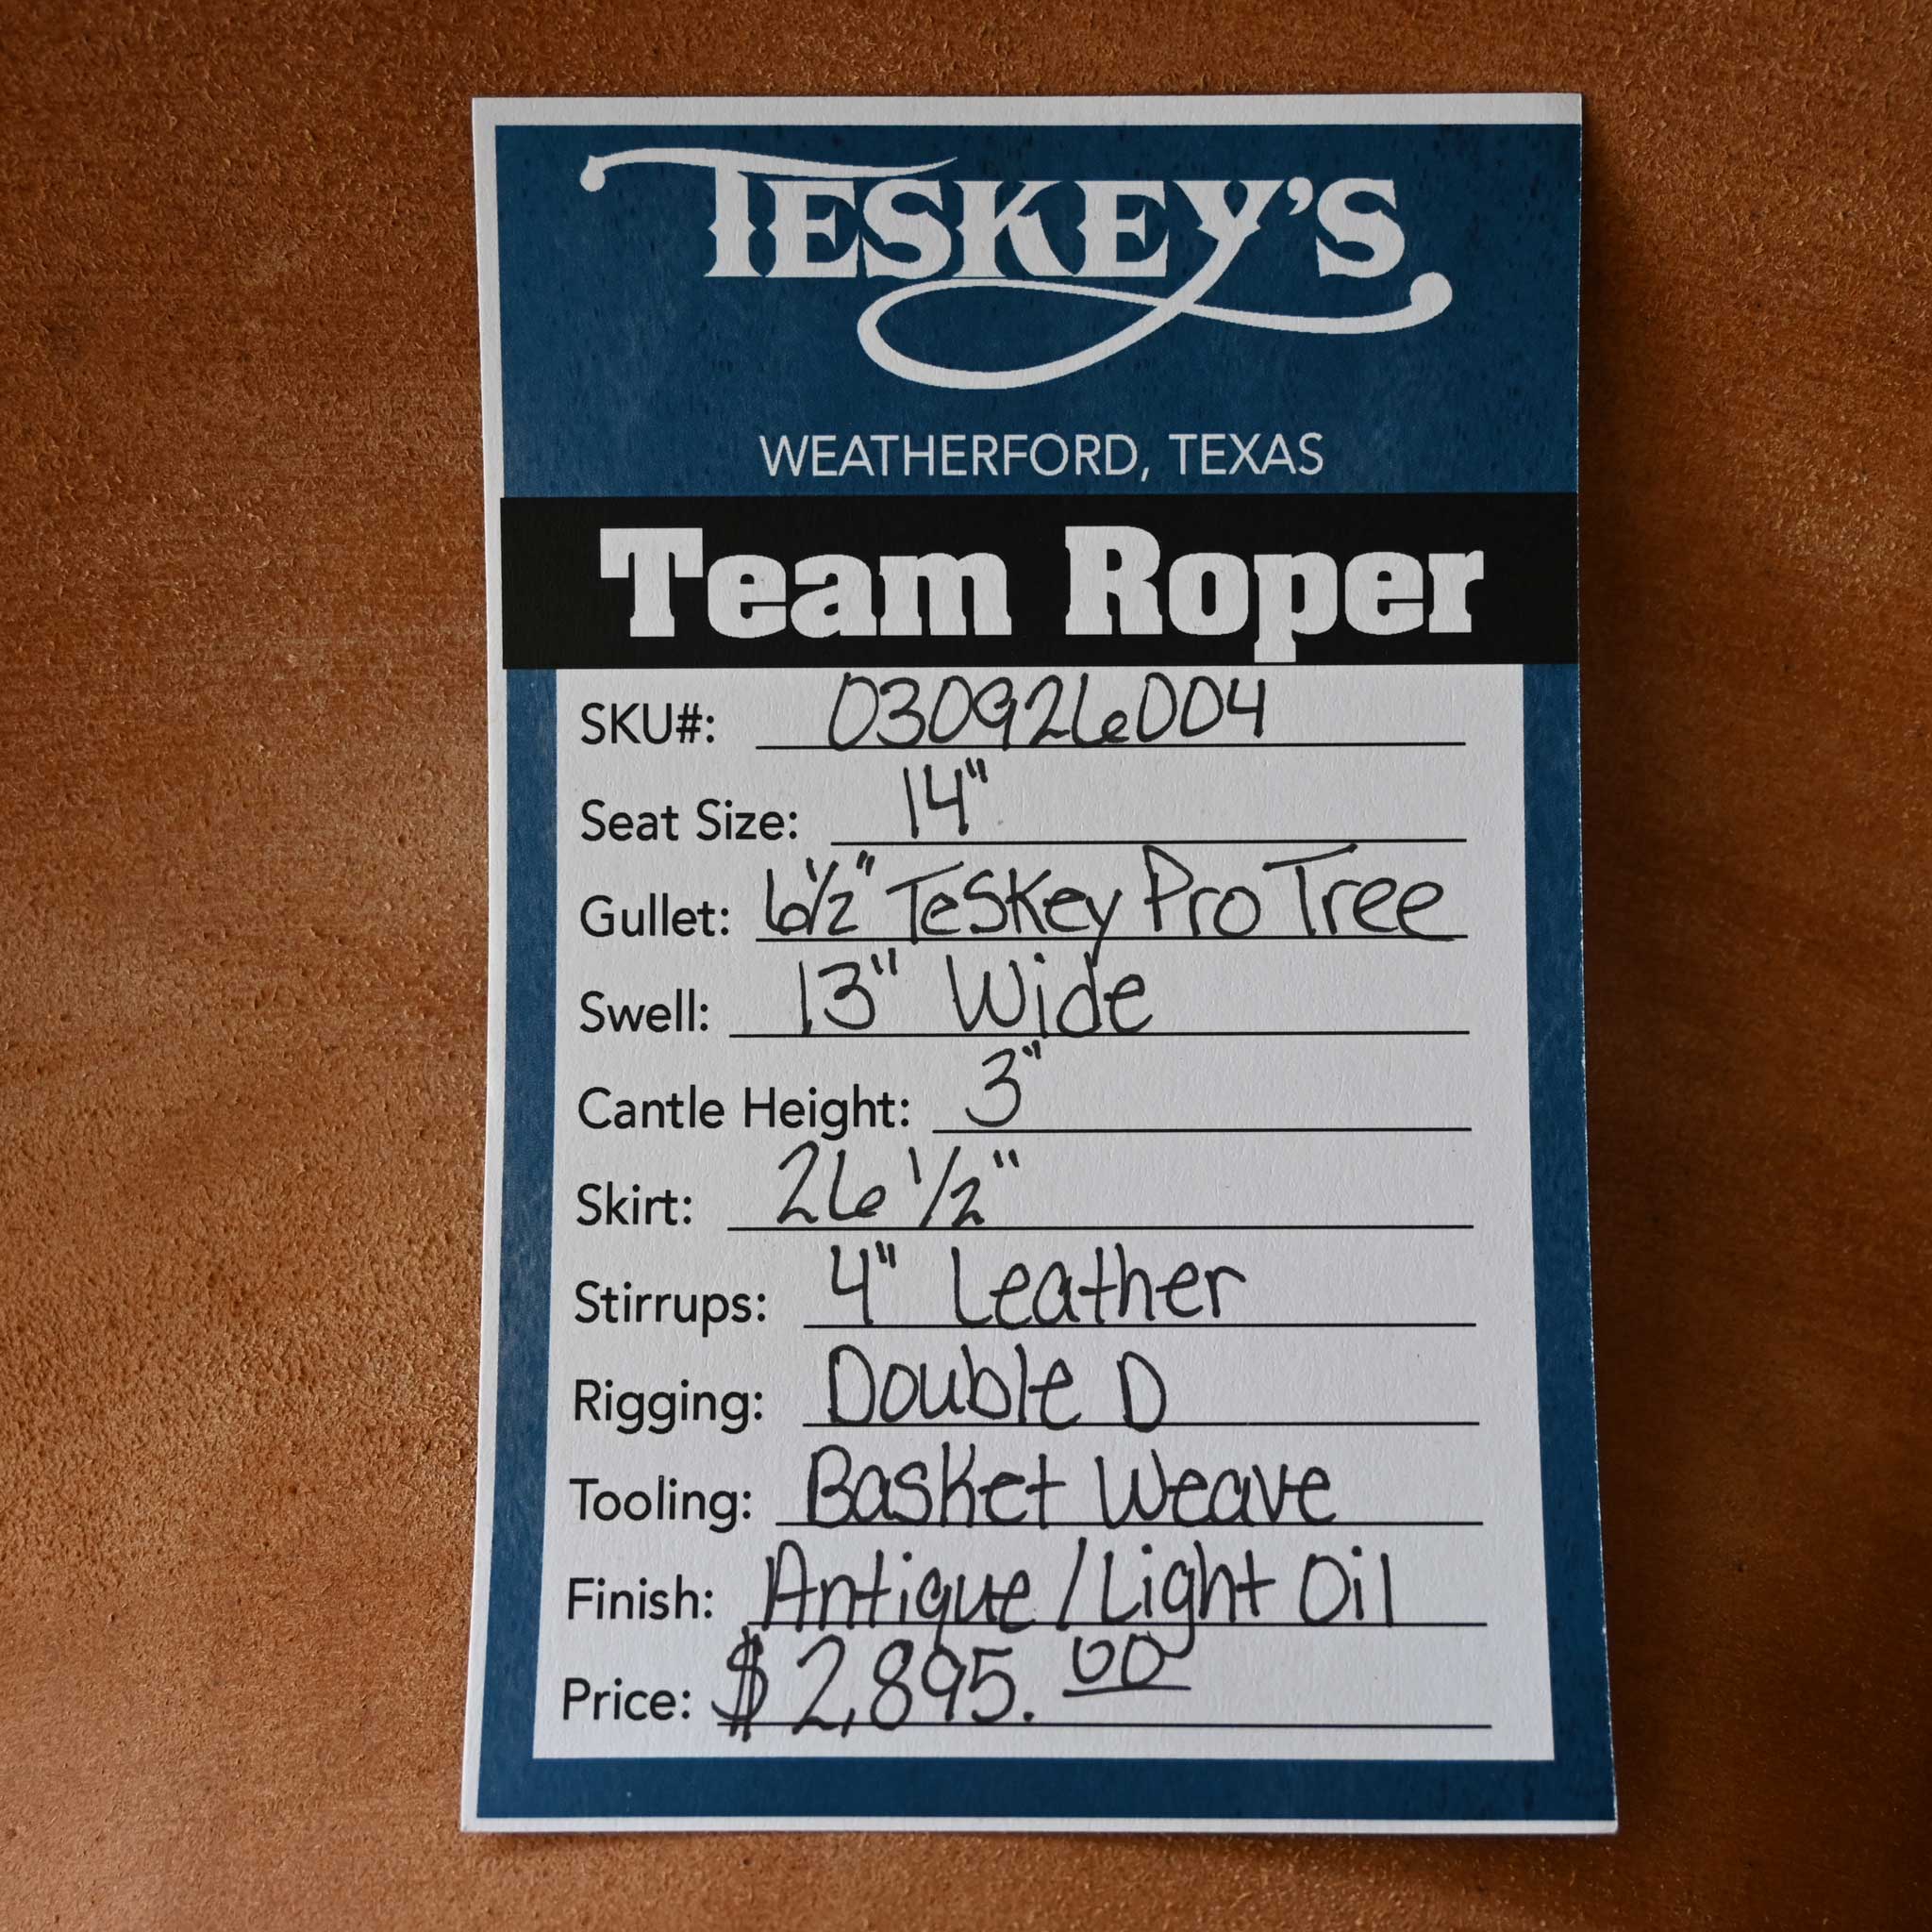 TESKEY'S
WEATHERFORD, TEXAS
Team Roper
SKU#: 030926004
Seat Size: 14"
Gullet: 6 1/2" Teskey Pro Tree
Swell: 13" Wide
Cantle Height: 3"
Skirt: 26 1/2"
Stirrups: 4" Leather
Rigging: Double D
Tooling: Basket Weave
Finish: Antique / Light Oil
Price: $2,895.00